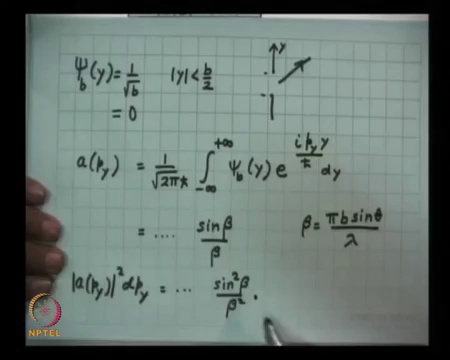 ψ_b(y) = 1/√b   |y| < b/2   y
= 0
a(p_y) = 1/√(2πħ) ∫_{-∞}^{+∞} ψ_b(y) e^{i p_y y/ħ} dy
= .... sin β / β   β = πb sinθ / λ
|a(p_y)|² dp_y = ... sin²β / β² .
NPTEL